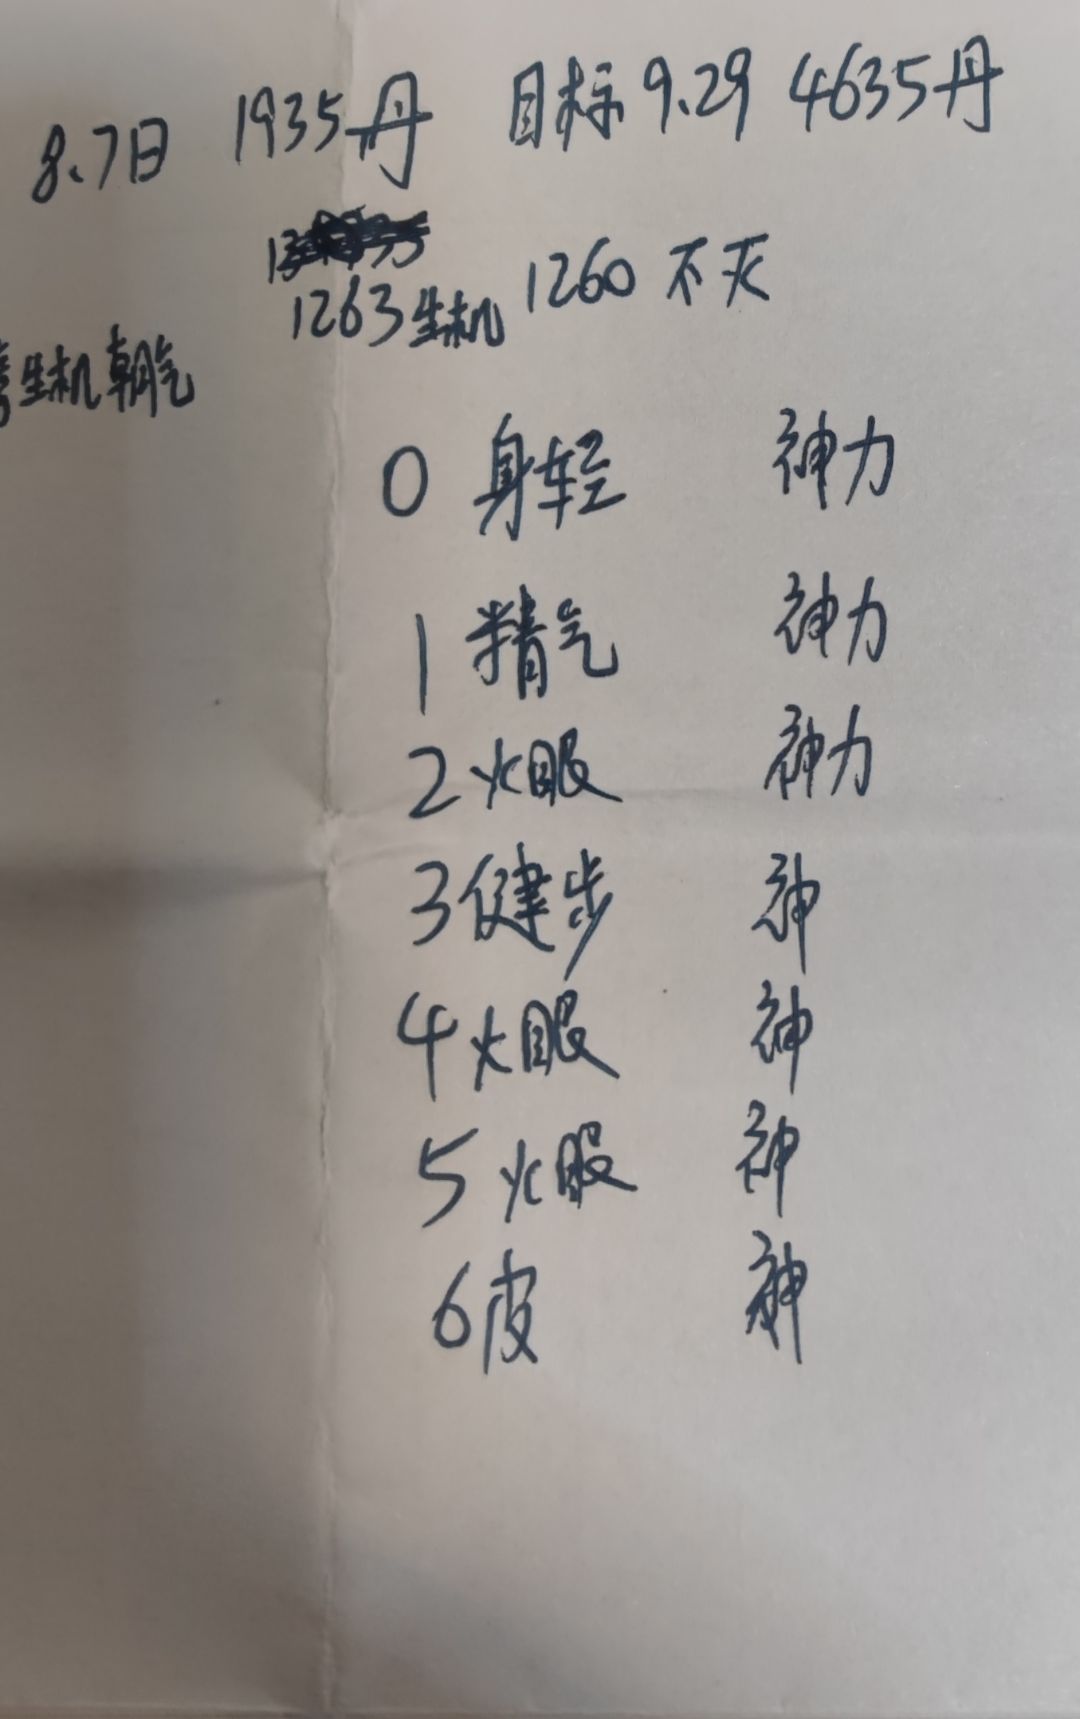 8.7日 1935丹 目标9.29 4635丹
1263生机 1260不灭
生机朝气
0 身轻 神力
1 精气 神力
2 火眼 神力
3 健步 神
4 火眼 神
5 火眼 神
6 皮 神